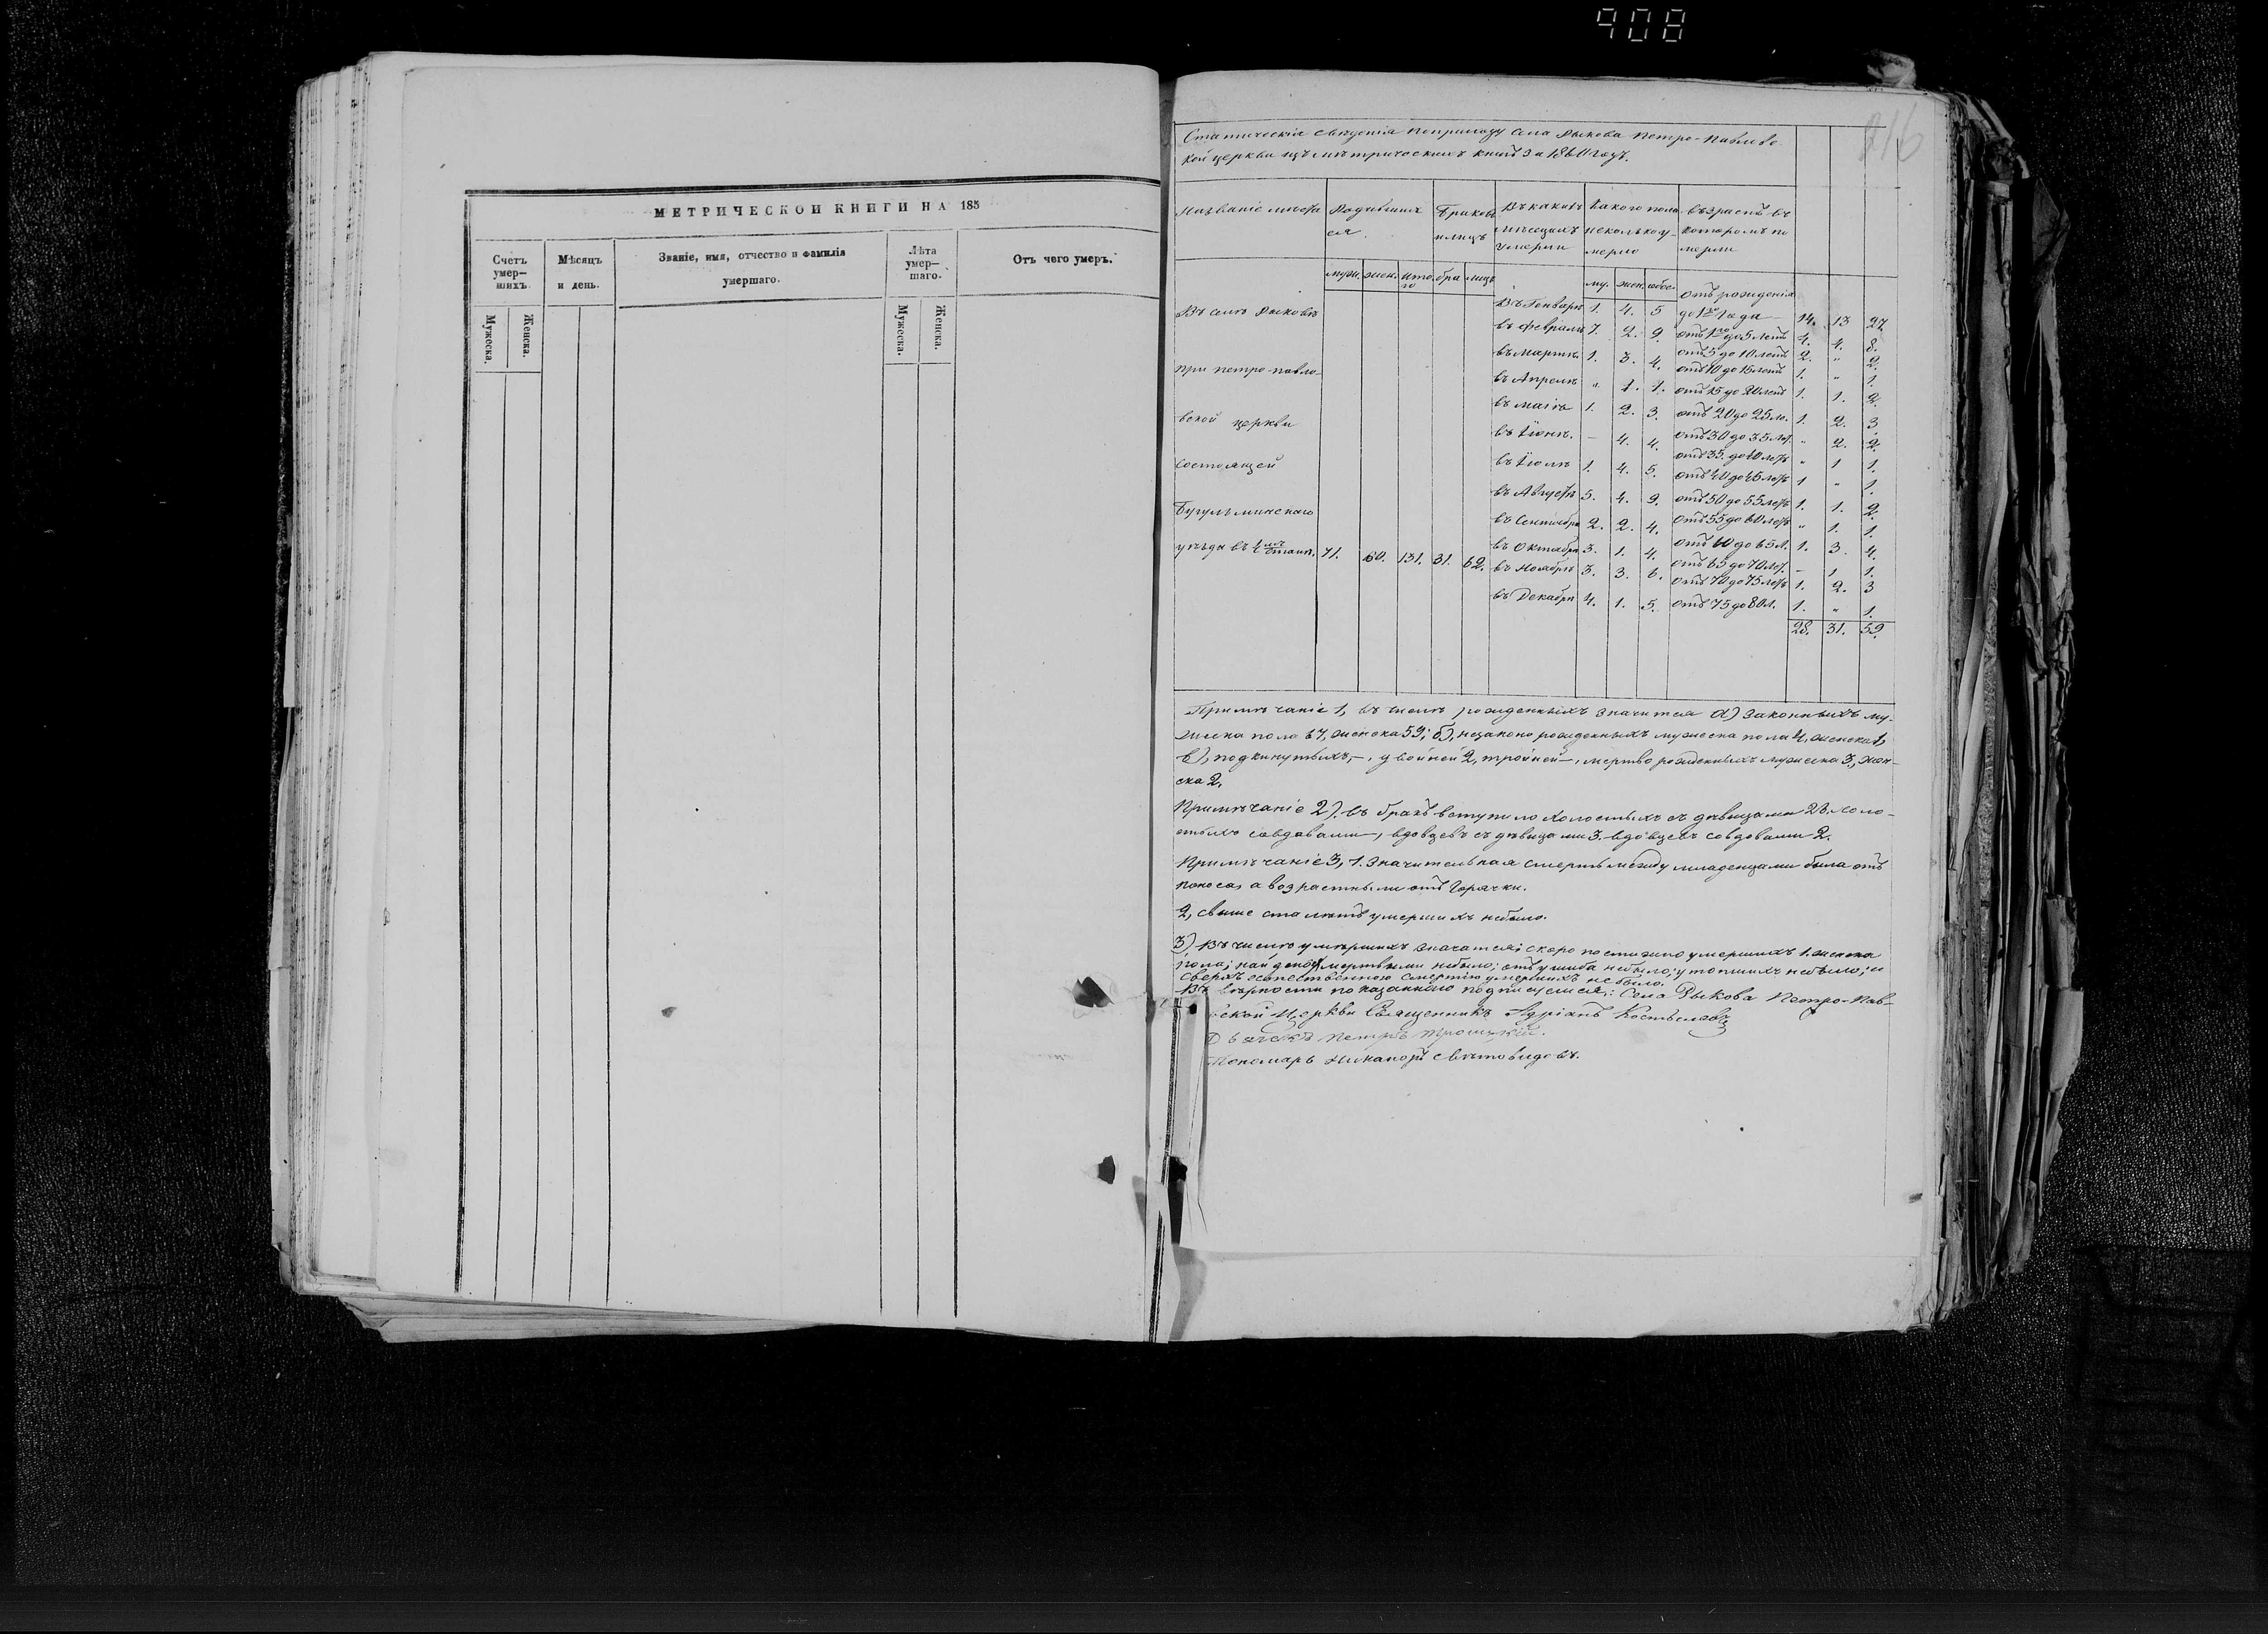 908
816
МЕТРИЧЕСКОЙ КНИГИ НА 185
Счетъ умер-шихъ.
Мѣсяцъ и день.
Званіе, имя, отчество и фамилія умершаго.
Лѣта умер-шаго.
Отъ чего умеръ.
Мужеска. Женска.
Мужеска. Женска.
Статическія свѣденія поприходу села Рыкова Петро-Павлов-
кой церкви изъ мѣтрическихъ книгъ за 1860 годъ.
Названіе мѣста Родившихся Браковъ и лицъ Въ какихъ мѣсяцахъ умерли Какого пола и сколько умерло Възрастъ въ которомъ померли
муж. жен. итого бра лицъ му. жен. обое.
Въ селѣ Рыковѣ
при Петро-павло-
вской церкви
состоящей
Бугульминскаго
уѣзда въ 1 мъ станѣ. 71. 60. 131. 31. 62.
Въ Генварѣ 1. 4. 5
въ Февралѣ 7. 2. 9.
въ Мартѣ 1. 3. 4.
въ Апрелѣ " 1. 1.
въ Маіѣ 1. 2. 3.
въ Іюнѣ. - 4. 4.
въ Іюлѣ 1. 4. 5.
въ Августѣ 5. 4. 9.
въ Сентябрѣ 2. 2. 4.
въ Октябрѣ 3. 1. 4.
въ Ноябрѣ 3. 3. 6.
въ Декабрѣ 4. 1. 5.
отъ рожденія
до 1го года 14. 13 27
отъ 1го до 5 летъ 4. 4. 8.
отъ 5 до 10 летъ 2. " 2.
отъ 10 до 15 летъ 1. " 1.
отъ 15 до 20 летъ 1. 1. 2.
отъ 20 до 25 ле. 1. 2. 3
отъ 30 до 35 ле. " 2. 2.
отъ 35 до 40 летъ " 1 1.
отъ 40 до 45 летъ 1 " 1.
отъ 50 до 55 летъ 1. 1. 2.
отъ 55 до 60 летъ " 1. 1.
отъ 60 до 65 л. 1. 3. 4.
отъ 65 до 70 ле. - 1 1.
отъ 70 до 75 летъ 1. 2. 3
отъ 75 до 80 л. 1. " 1.
28. 31. 59.
Примѣчаніе 1, въ числѣ рожденныхъ значится а) законныхъ му-
жеска пола 67, женска 59; б), незаконо рожденныхъ мужеска пола 4, женска 1,
в), подкинутыхъ, -, двойней 2, тройней -, мертво рожденныхъ мужеска 3, жен-
ска 2.
Примѣчаніе 2). въ бракъ вступило холостыхъ съ дѣвицами 23. холо-
стыхъ совдавами -, вдовцевъ съ дѣвицами 3. вдовцевъ совдовами 2.
Примѣчаніе 3, 1. Значительная смерть между младенцами была отъ
поноса, а возрастными отъ Горячки.
2, свыше ста лѣтъ умершихъ небыло.
3) Въ числѣ умѣршихъ значатся: скоро постижно умершихъ 1. женска
пола; найдено мертвыми небыло; отъ ушиба небыло; утопшихъ небыло; и
сверхъ естественною смертію умершихъ небыло.
Въ вѣрности показаннаго подписуемся: Села Рыкова Петро-Пав-
ской Церкви Священникъ Адріанъ
Дьячекъ Петръ Троицкій.
Пономарь Никаноръ Свѣтовидовъ.